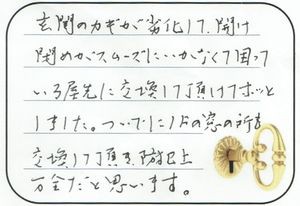 玄関のカギが劣化して、開け
閉めがスムーズにいかなくて困って
いる矢先に交換して頂けてホッと
しました。ついでに1Fの窓の所も
交換して頂き、防犯上
万全だと思います。